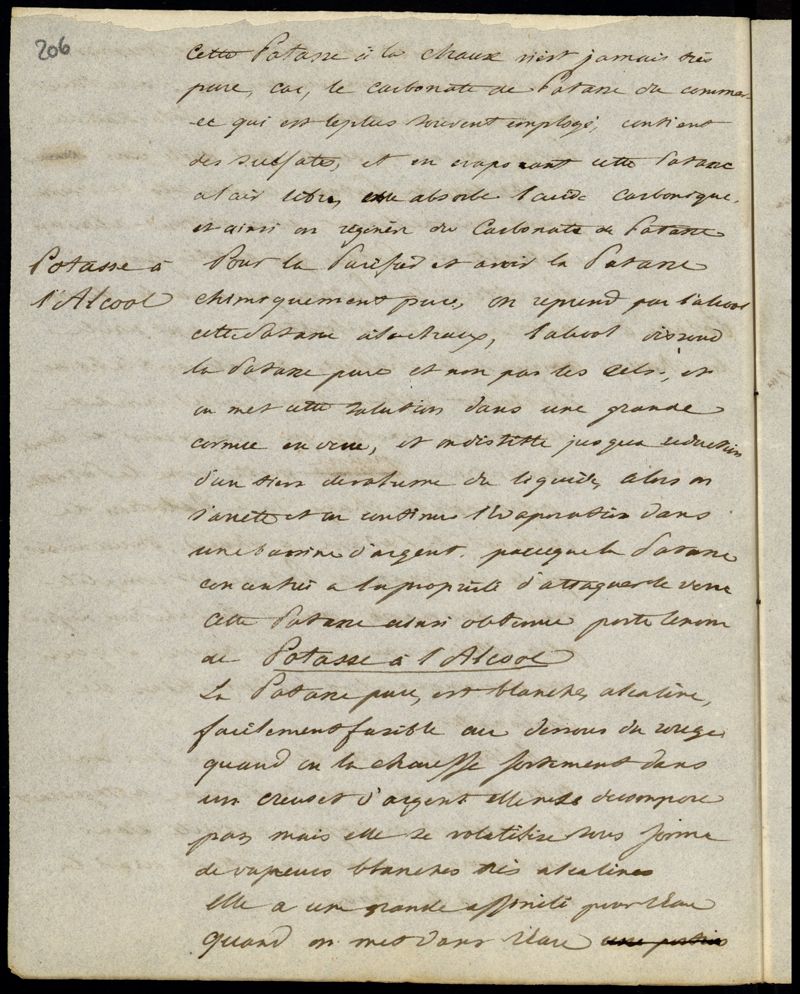 206
cette Potasse à la chaux n'est jamais très
pure, car, le carbonate de Potasse du commer-
ce qui est le plus souvent employé, contient
des sulfates, et en evaporant cette Potasse
a l'air libre, elle absorbe l'acide carbonique.
et ainsi on regénère du Carbonate de Potasse
Potasse à
l'Alcool
Pour la Purifier et avoir la Potasse
chimiquement pure, on reprend par l'alcool
cette Potasse à la chaux, l'alcool dissoud
la Potasse pure et non pas les sels, et
on met cette solution dans une grande
cornue en verre, et on distille jusqu'a reduction
d'un tiers du volume du liquide, alors on
l'arrête et on continue l'Evaporation dans
une bassine d'argent. parceque la Potasse
concentrée a la propriété d'attaquer le verre
cette Potasse ainsi obtenue porte le nom
de Potasse à l'Alcool
La Potasse pure, est blanche, alcaline,
facilement fusible au dessous du rouge
quand on la chauffe fortement dans
un creuset d'argent elle ne se decompose
pas, mais elle se volatilise sous forme
de vapeurs blanches très alcalines
elle a une grande affinité pour l'eau
quand on met dans l'eau une portion